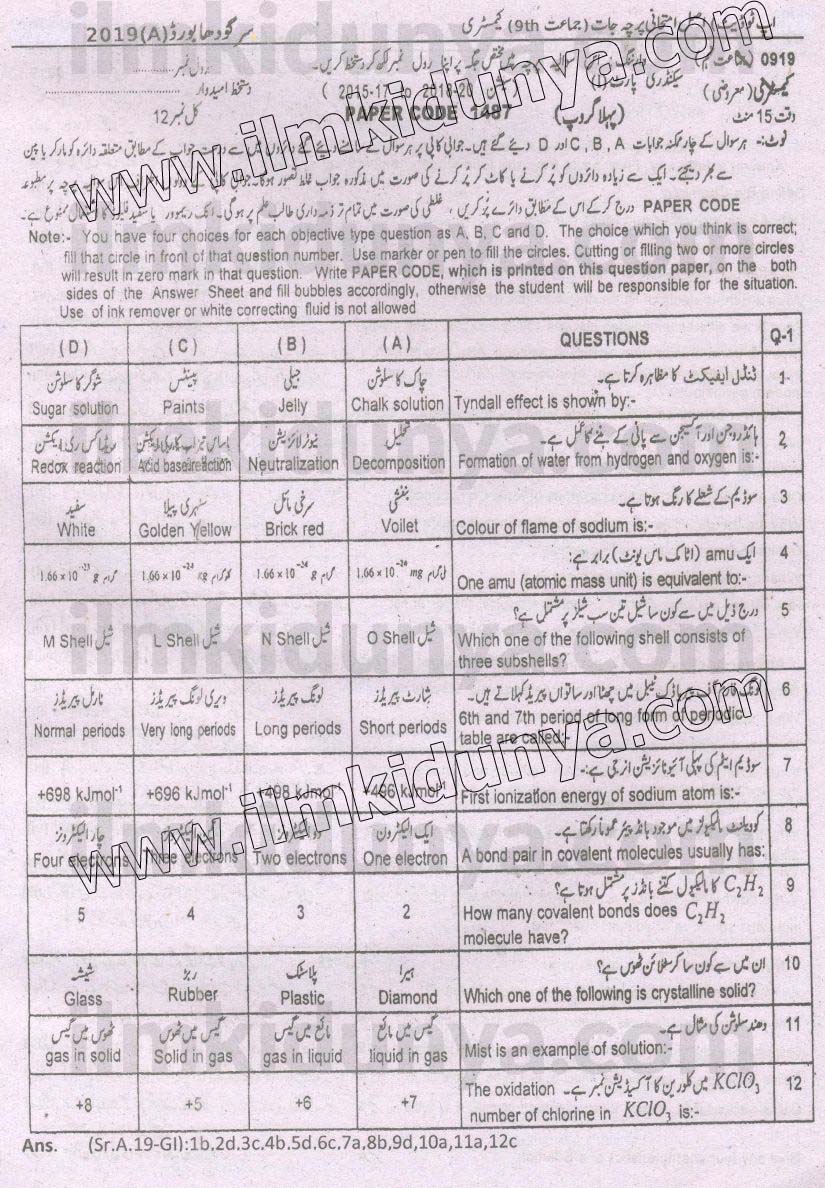 سرگودھا بورڈ 2019(A)
پرچہ جات (جماعت 9th) کیمسٹری
0919
رول نمبر
کیمسٹری (معروضی)
( 2015-17 to 2018-20
دستخط امیدوار
وقت 15 منٹ
(پہلا گروپ)
PAPER CODE 1487
کل نمبر 12
نوٹ:- ہر سوال کے چار ممکنہ جوابات A ,B ,C اور D دیئے گئے ہیں۔
PAPER CODE درج کر کے اس کے مطابق دائرے پُر کریں ، غلطی کی صورت میں تمام تر ذمہ داری طالب علم پر ہوگی۔
Note:- You have four choices for each objective type question as A, B, C and D. The choice which you think is correct;
fill that circle in front of that question number. Use marker or pen to fill the circles. Cutting or filling two or more circles
will result in zero mark in that question. Write PAPER CODE, which is printed on this question paper, on the both
sides of the Answer Sheet and fill bubbles accordingly, otherwise the student will be responsible for the situation.
Use of ink remover or white correcting fluid is not allowed
(D) (C) (B) (A) QUESTIONS Q-1
شوگر کا سلوشن پینٹس جیلی چاک کا سلوشن ٹنڈل ایفیکٹ کا مظاہرہ کرتا ہے۔ 1-
Sugar solution Paints Jelly Chalk solution Tyndall effect is shown by:-
ریڈاکس ری ایکشن نیوٹرلائزیشن تحلیل ہائڈروجن اور آکسیجن سے پانی کے بننے کا عمل ہے۔ 2
Redox reaction Acid base reaction Neutralization Decomposition Formation of water from hydrogen and oxygen is:-
سفید سنہری پیلا سرخی مائل بنفشی سوڈیم کے شعلے کا رنگ ہوتا ہے۔ 3
White Golden Yellow Brick red Voilet Colour of flame of sodium is:-
ایک amu (اٹامک ماس یونٹ) برابر ہے: 4
1.66 × 10⁻²³ g گرام 1.66 × 10⁻²⁴ kg کلوگرام 1.66 × 10⁻²⁴ g گرام 1.66 × 10⁻²⁴ mg ملی گرام One amu (atomic mass unit) is equivalent to:-
درج ذیل میں سے کون سا شیل تین سب شیلز پر مشتمل ہے؟ 5
M Shell شیل L Shell شیل N Shell شیل O Shell شیل Which one of the following shell consists of
three subshells?
نارمل پیریڈز ویری لونگ پیریڈز لونگ پیریڈز شارٹ پیریڈز ٹیبل میں چھٹا اور ساتواں پیریڈ کہلاتے ہیں۔ 6
Normal periods Very long periods Long periods Short periods 6th and 7th period of long form of periodic
table are called:-
سوڈیم ایٹم کی پہلی آئیونائزیشن انرجی ہے:- 7
+698 kJmol⁻¹ +696 kJmol⁻¹ +498 kJmol⁻¹ +496 kJmol⁻¹ First ionization energy of sodium atom is:-
چار الیکٹرونز ایک الیکٹرون کوویلنٹ مالیکیولز میں موجود بانڈ پیئر عموماً رکھتا ہے۔ 8
Four electrons Three electrons Two electrons One electron A bond pair in covalent molecules usually has:
C₂H₂ کا مالیکیول کتنے بانڈز پر مشتمل ہوتا ہے؟ 9
5 4 3 2 How many covalent bonds does C₂H₂
molecule have?
شیشہ ربڑ پلاسٹک ہیرا ان میں سے کون سا کرسٹلائن ٹھوس ہے؟ 10
Glass Rubber Plastic Diamond Which one of the following is crystalline solid?
ٹھوس میں گیس گیس میں ٹھوس مائع میں گیس گیس میں مائع دھند سلوشن کی مثال ہے۔ 11
gas in solid Solid in gas gas in liquid liquid in gas Mist is an example of solution:-
The oxidation KClO₃ میں کلورین کا آکسیڈیشن نمبر ہے۔ 12
+8 +5 +6 +7 number of chlorine in KClO₃ is:-
Ans. (Sr.A.19-GI):1b,2d.3c.4b.5d.6c,7a,8b,9d,10a,11a,12c
www.ilmkidunya.com
www.ilmkidunya.com
ilmkidunya.com